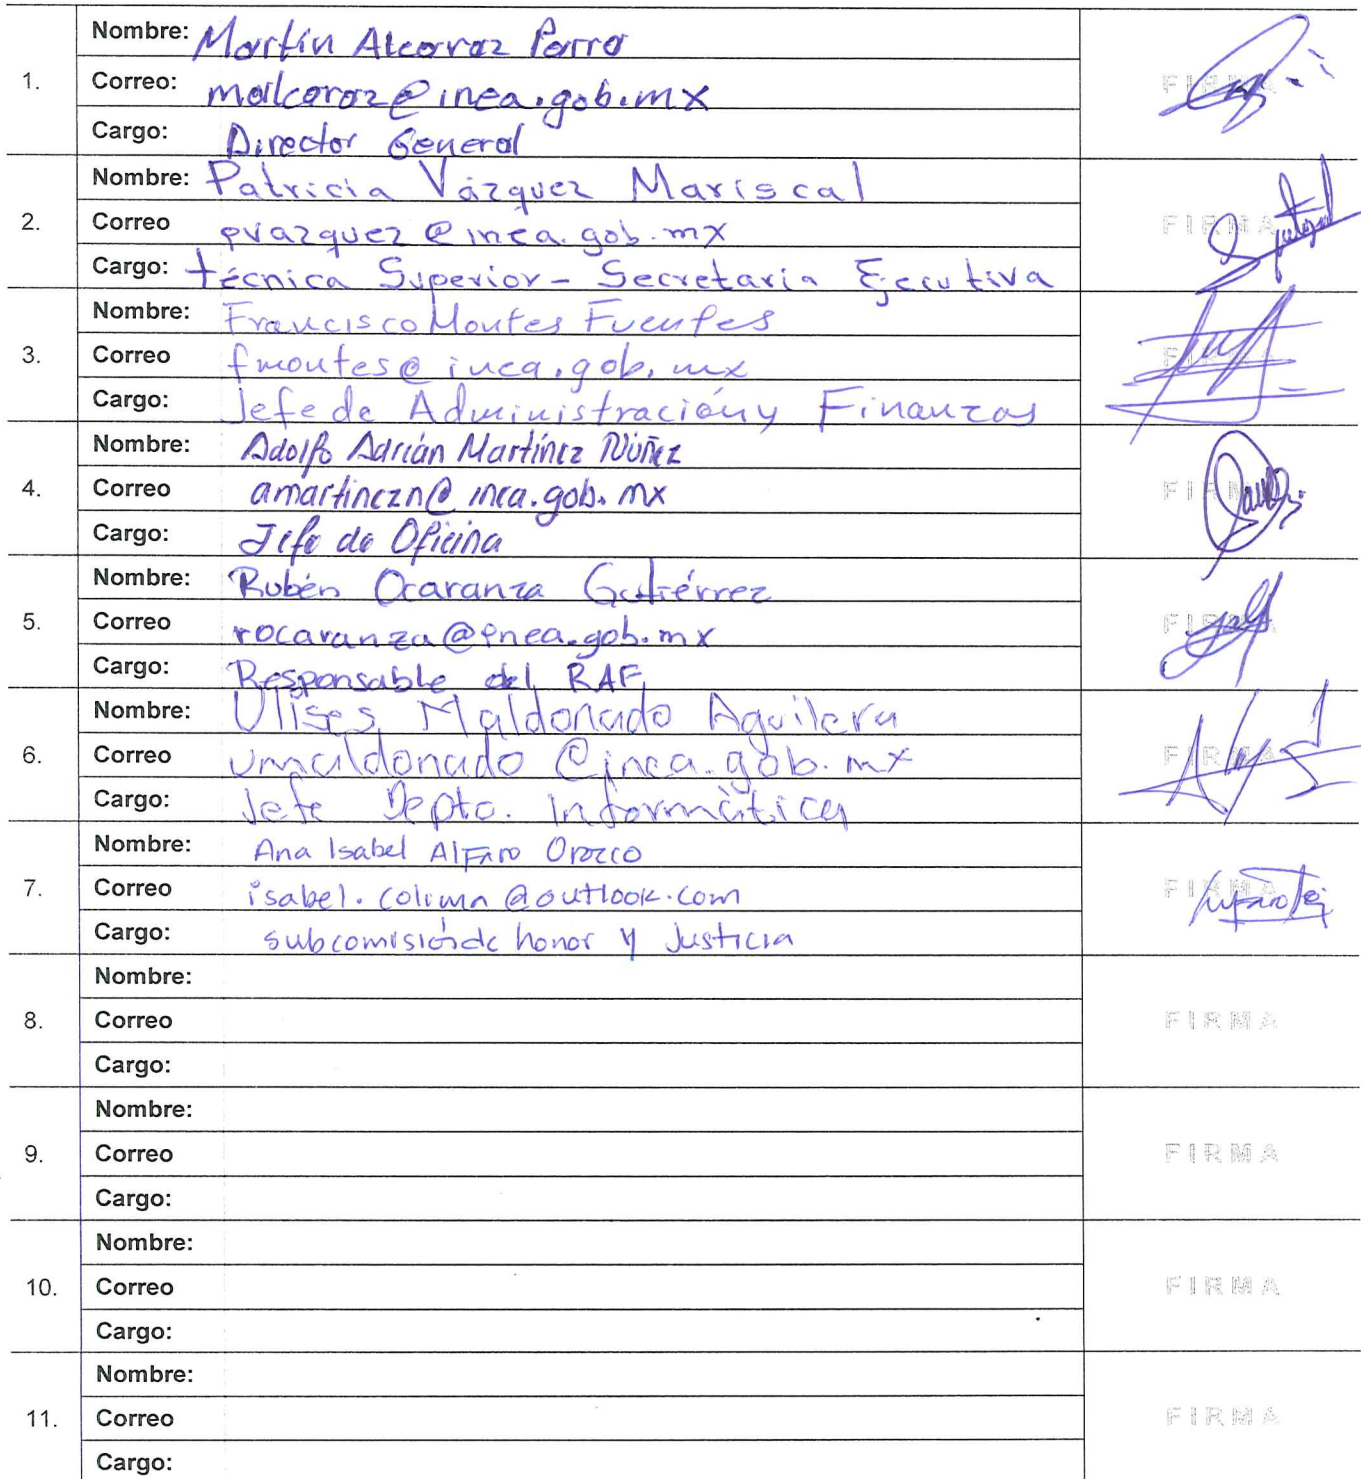 Nombre: Martín Alcaraz Parra
1. Correo: malcaraz@inea.gob.mx FIRMA
Cargo: Director General
Nombre: Patricia Vázquez Mariscal
2. Correo pvazquez@inea.gob.mx FIRMA
Cargo: técnica Superior - Secretaria Ejecutiva
Nombre: Francisco Montes Fuentes
3. Correo fmontes@inea.gob.mx FIRMA
Cargo: Jefe de Administración y Finanzas
Nombre: Adolfo Adrián Martínez Núñez
4. Correo amartinezn@inea.gob.mx FIRMA
Cargo: Jefe de Oficina
Nombre: Rubén Ocaranza Gutiérrez
5. Correo rocaranza@inea.gob.mx FIRMA
Cargo: Responsable del RAF
Nombre: Ulises Maldonado Aguilera
6. Correo umaldonado@inea.gob.mx FIRMA
Cargo: Jefe Depto. Informática
Nombre: Ana Isabel Alfaro Orozco
7. Correo isabel.colima@outlook.com FIRMA
Cargo: subcomisión de honor y Justicia
Nombre:
8. Correo FIRMA
Cargo:
Nombre:
9. Correo FIRMA
Cargo:
Nombre:
10. Correo FIRMA
Cargo:
Nombre:
11. Correo FIRMA
Cargo: